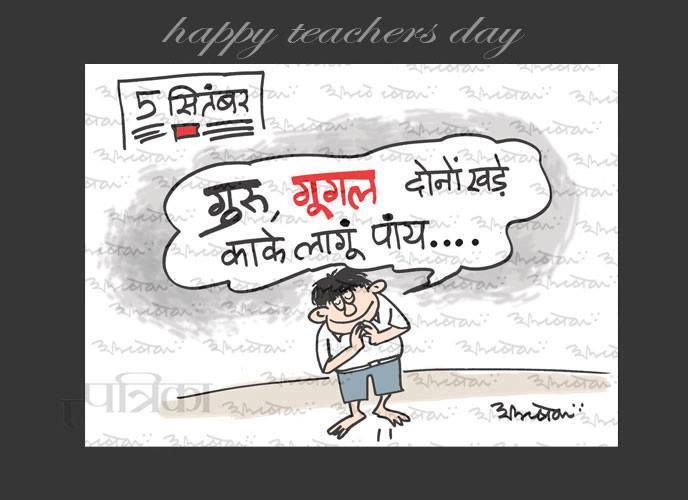 happy teachers day
5 सितंबर
गुरु, गूगल दोनों खड़े
काके लागूं पांय....
पत्रिका